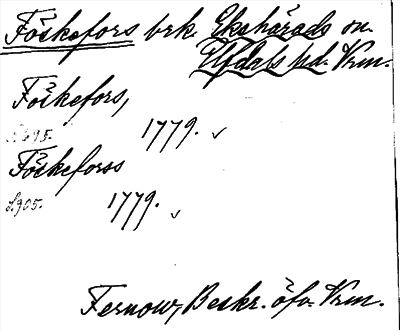 Föskefors brk. Ekshärads sn.
Elfdals hd. Vrm.
Föskefors,
S. 695.
1779. v
Föskeforss
S. 905.
1779. v
Fernow, Beskr. öfv. Vrm.